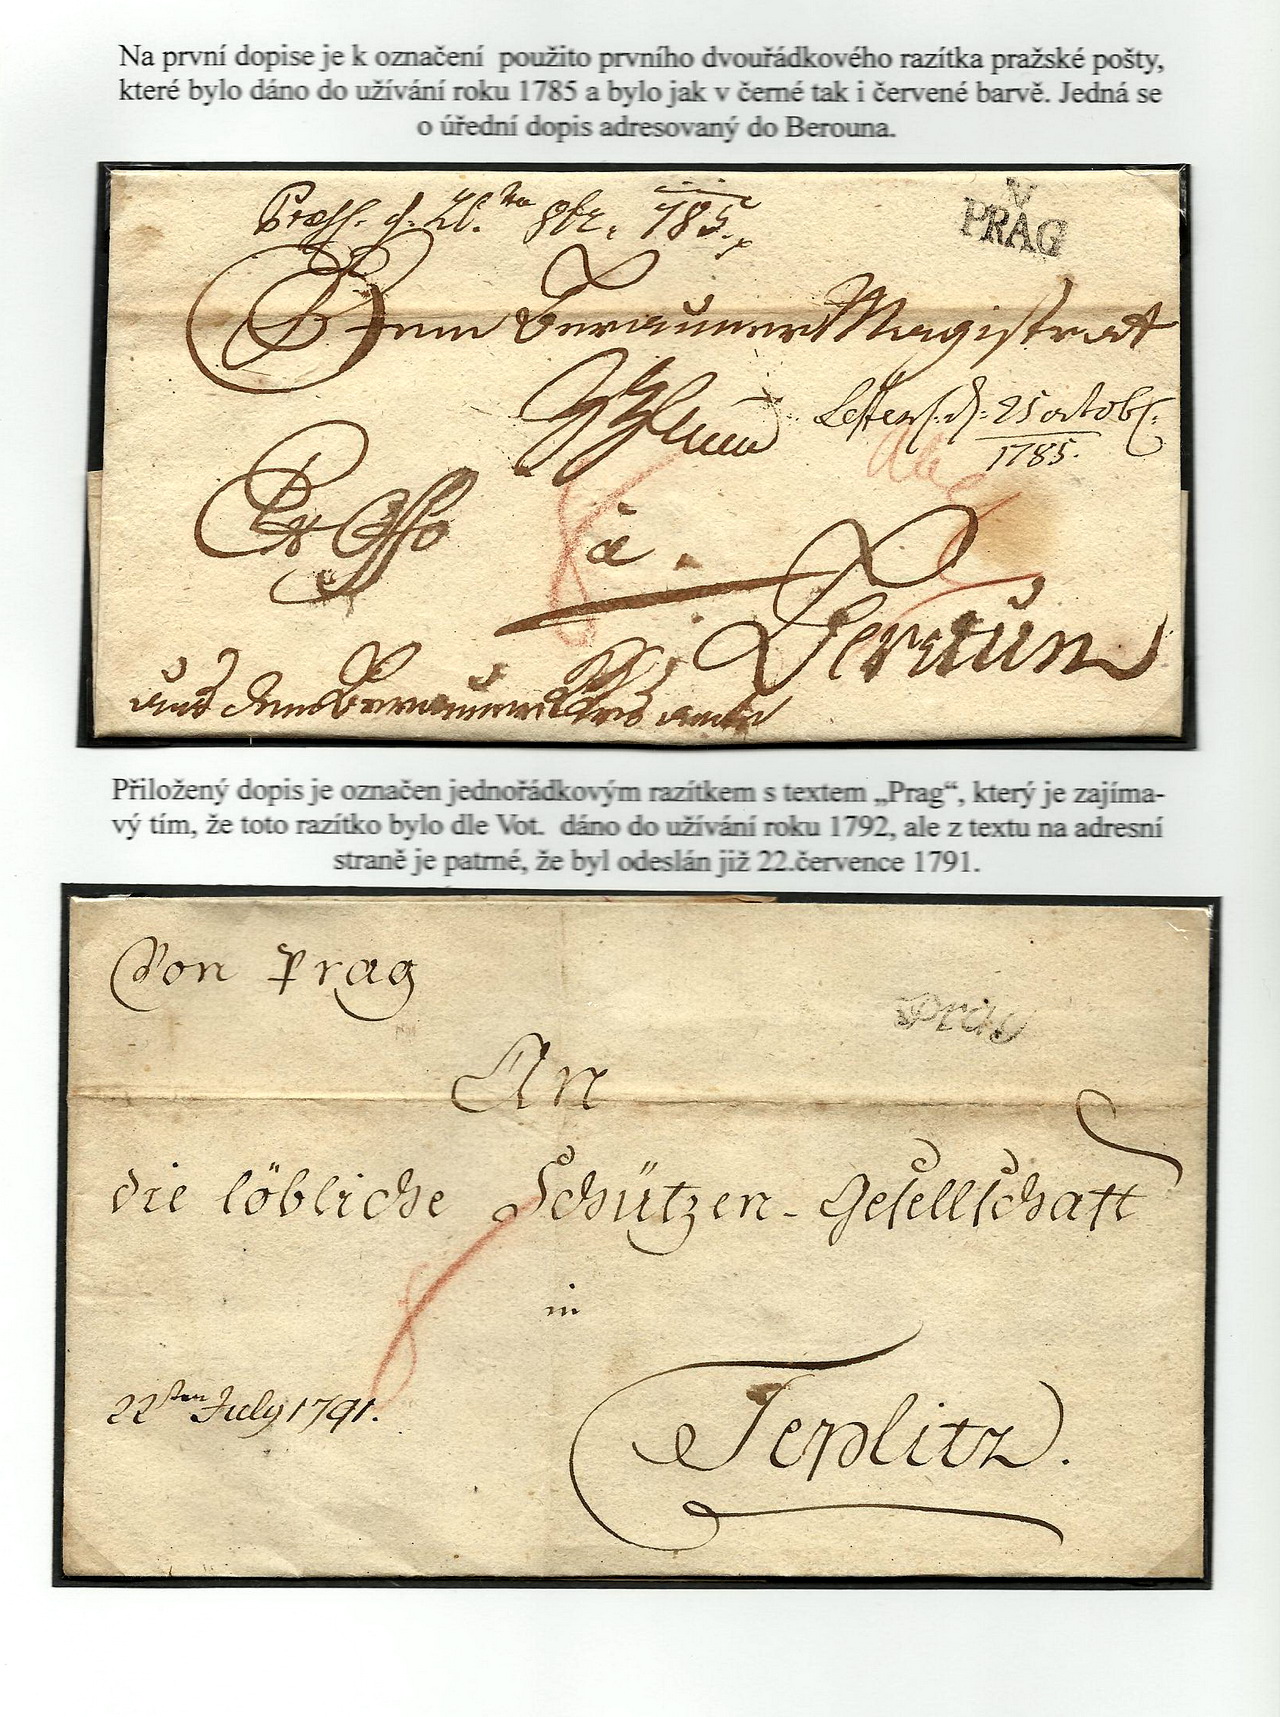 Na první dopise je k označení použito prvního dvouřádkového razítka pražské pošty,
které bylo dáno do užívání roku 1785 a bylo jak v černé tak i červené barvě. Jedná se
o úřední dopis adresovaný do Berouna.
785.
V
PRAG
Dem Berauner Magistrat
25 octobr.
1785.
Ex Offo
à
Beraun
aus dem Berauner
Přiložený dopis je označen jednořádkovým razítkem s textem „Prag“, který je zajíma-
vý tím, že toto razítko bylo dle Vot. dáno do užívání roku 1792, ale z textu na adresní
straně je patrné, že byl odeslán již 22.července 1791.
Von Prag
Prag
An
die löbliche Schützen-Gesellschaft
8
in
22ten July 1791.
Teplitz.